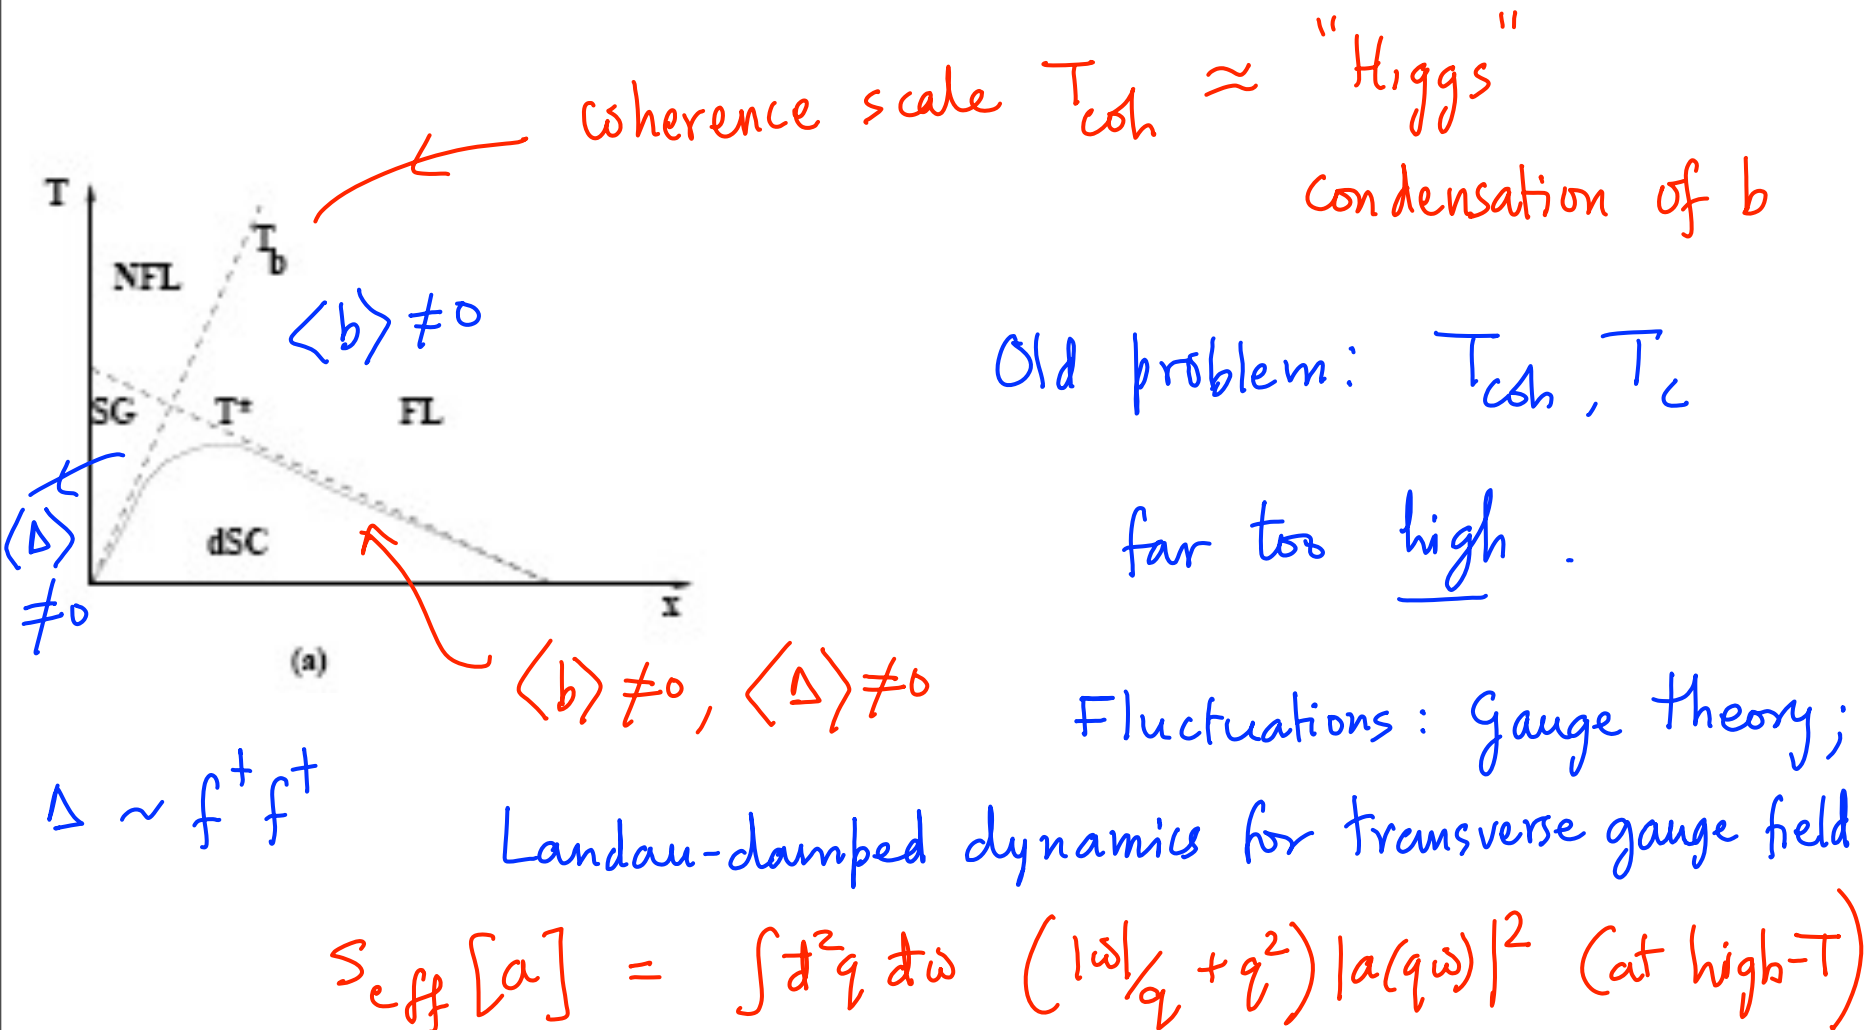 coherence scale T_coh ≈ "Higgs"
condensation of b
T
T_b
NFL
⟨b⟩ ≠ 0
Old problem: T_coh, T_c
SG T* FL
far too high.
⟨Δ⟩
≠ 0
dSC
x
(a)
⟨b⟩ ≠ 0, ⟨Δ⟩ ≠ 0
Fluctuations: Gauge theory;
Δ ~ f† f†
Landau-damped dynamics for transverse gauge field
S_eff [a] = ∫ đ²q đω (|ω|/q + q²) |a(qω)|² (at high-T)